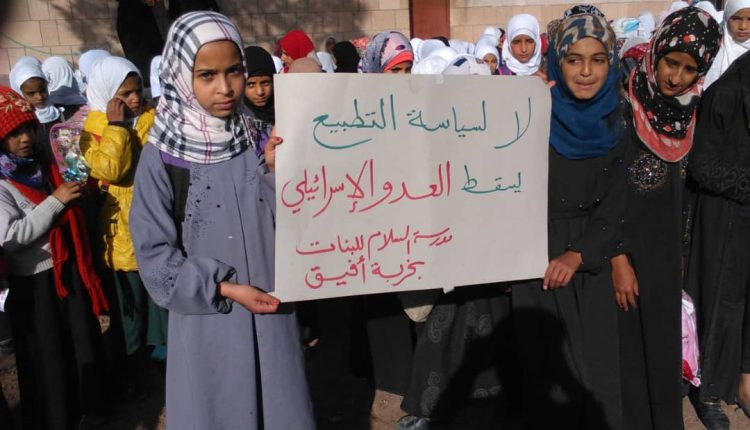 لا لسياسة التطبيع
يسقط العدو الإسرائيلي
مدرسة السلام للبنات
بخربة أفيق